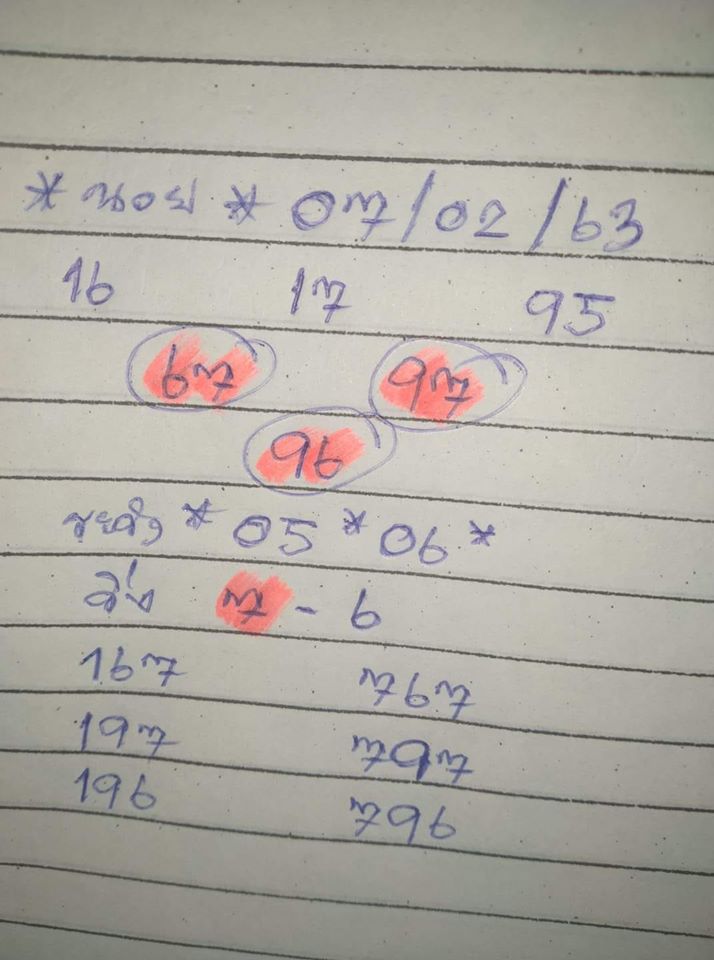 *นอย* 07/02/63
16 17 95
67 97
96
ระวัง *05*06*
วิ่ง 7-6
167 767
197 797
196 796